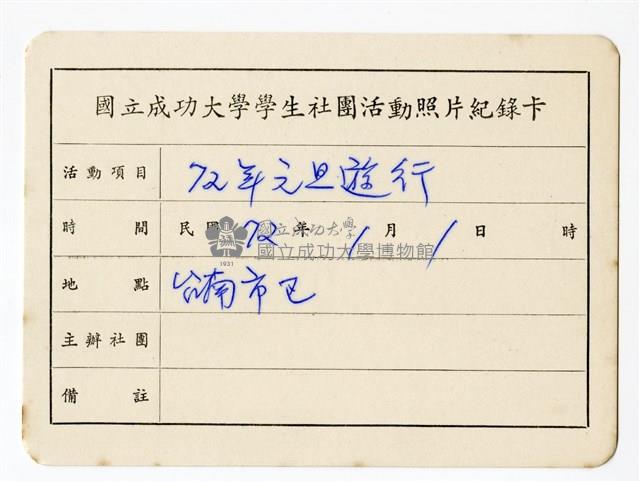 國立成功大學學生社團活動照片紀錄卡
活動項目 72年元旦遊行
時間 民國72年1月1日 時
國立成功大學
國立成功大學博物館
1931
地點 台南市区
主辦社團
備註